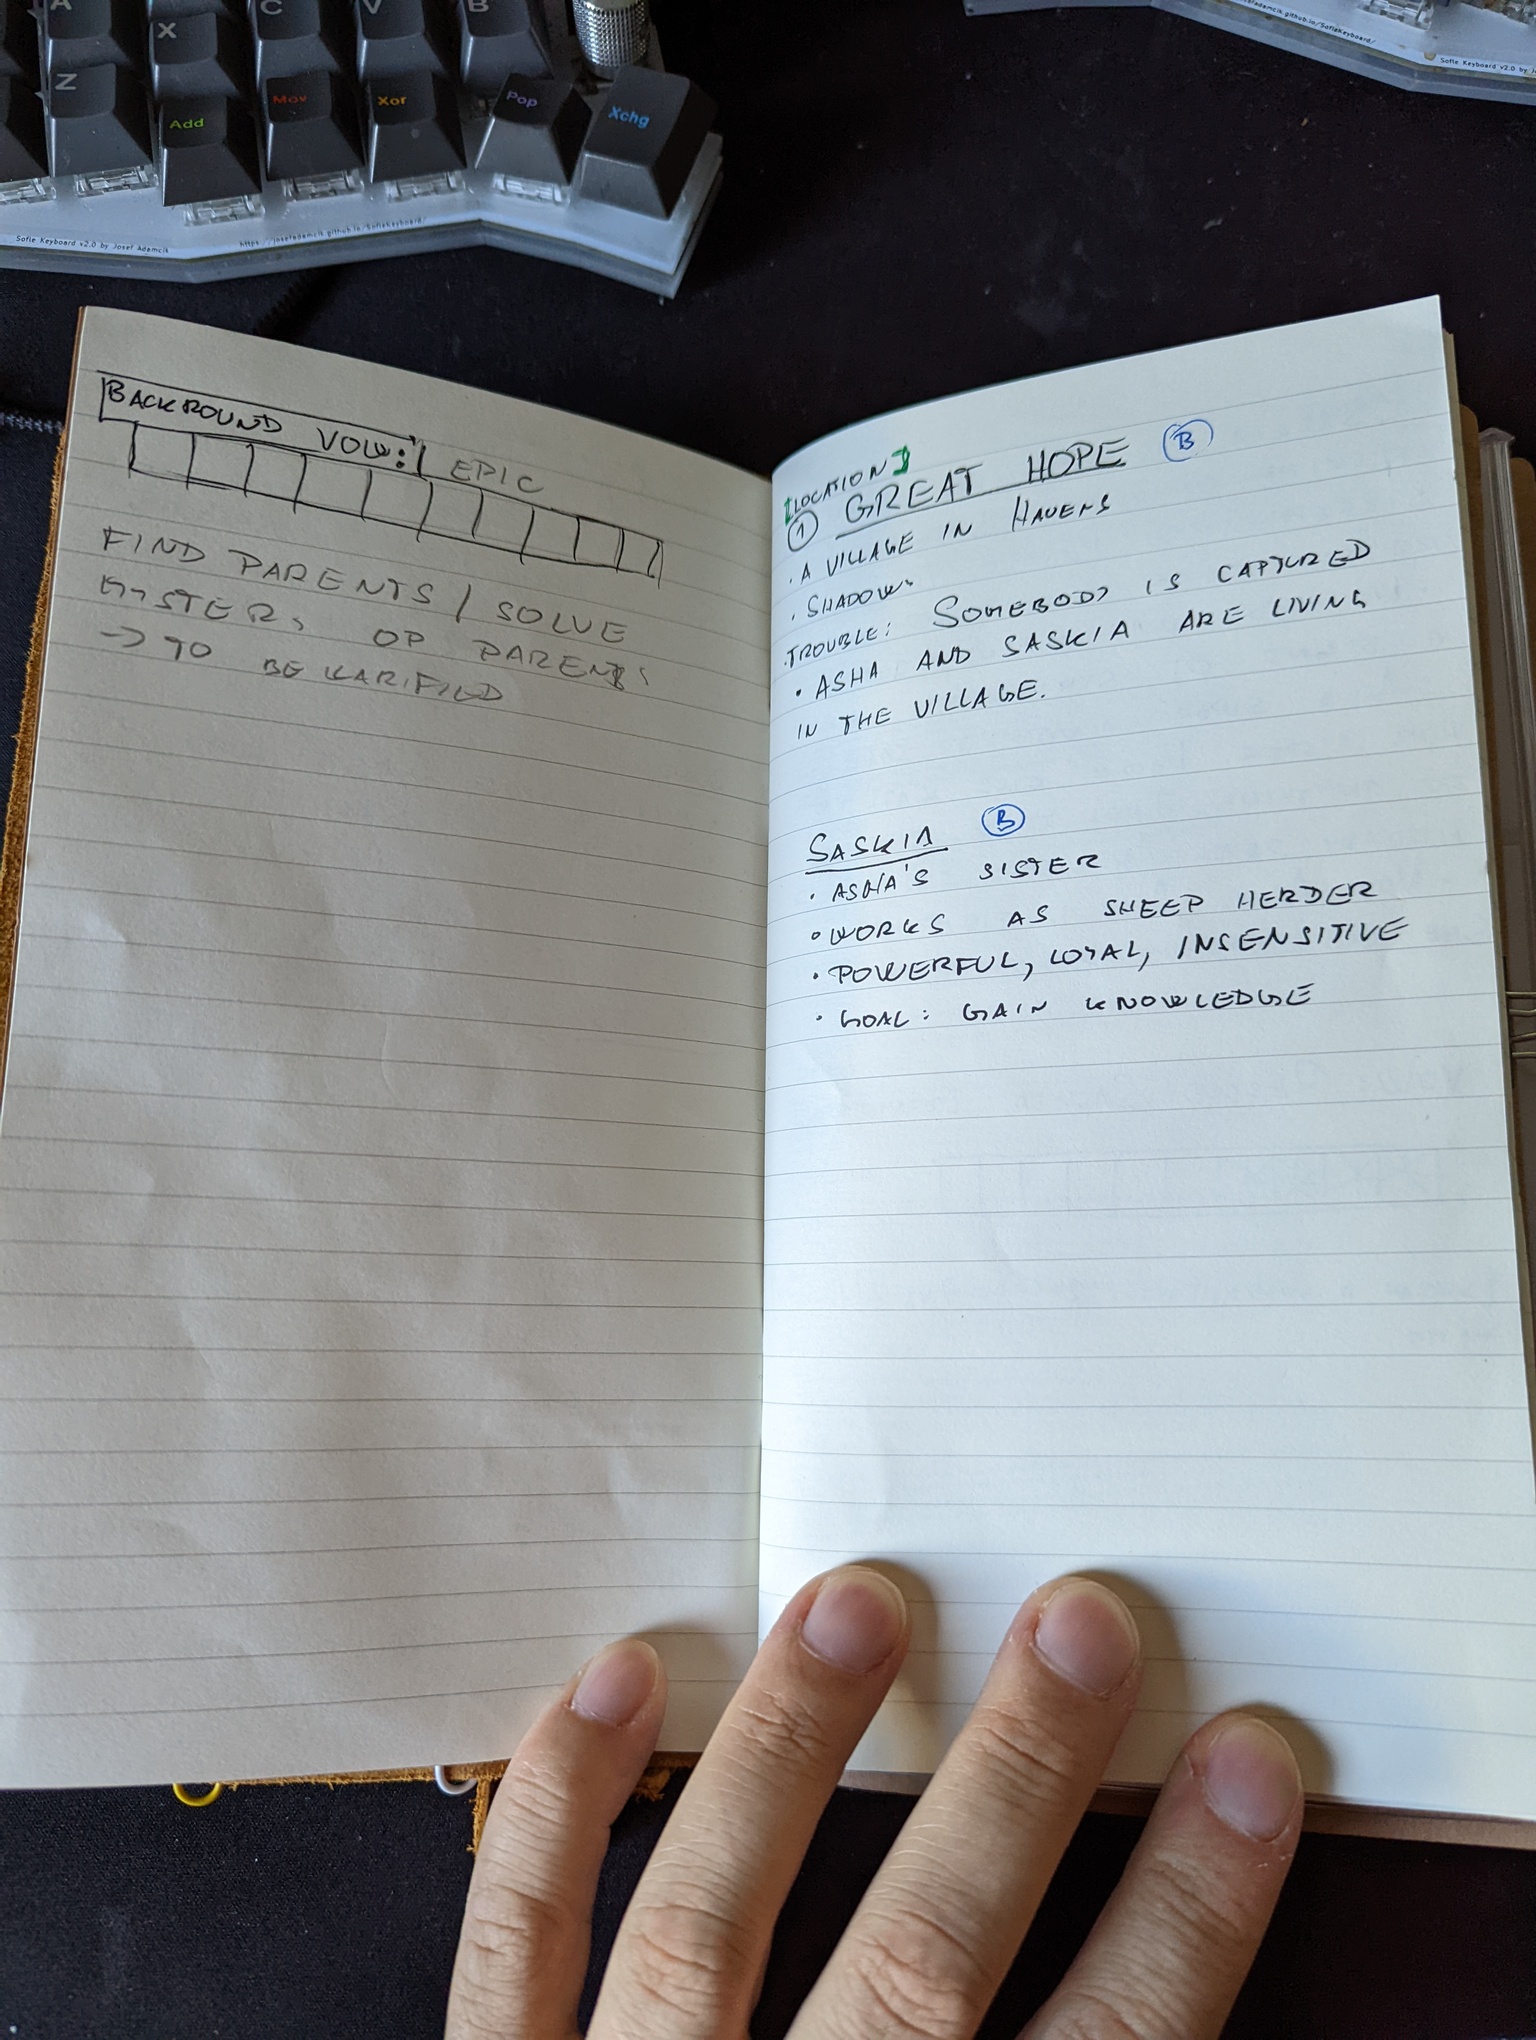 A
X
C
V
B
Z
Add
Mov
Xor
Pop
Xchg
Sofle Keyboard v2.0 by Josef Adamcik
https://josefadamcik.github.io/SofleKeyboard/
josefadamcik.github.io/SofleKeyboard/
Sofle Keyboard v2.0 by Josef Adamcik
BACKROUND VOW: EPIC
FIND PARENTS / SOLVE
MYSTERY OF PARENTS
→ TO BE KLARIFIED
[LOCATION]
1 GREAT HOPE B
· A VILLAGE IN HAVENS
· SHADOWS
· TROUBLE: SOMEBODY IS CAPTURED
· ASHA AND SASKIA ARE LIVING
IN THE VILLAGE.
SASKIA B
· ASHA'S SISTER
· WORKS AS SHEEP HERDER
· POWERFUL, LOYAL, INSENSITIVE
· GOAL: GAIN KNOWLEDGE